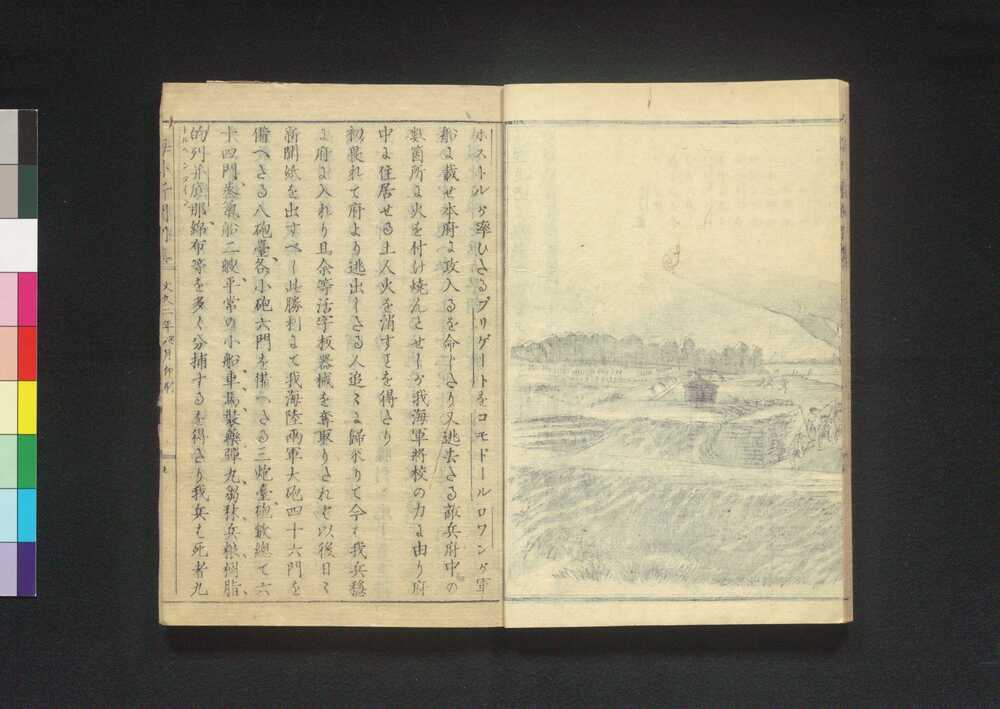 ホストルガ率ひたるブリゲートをコモドールロワンガ軍
船に載せ本府に攻入るを命じたり又逃去たる敵兵府中の
数箇所に火を付け焼んとせしが我海軍将校の力に由り府
中に住居せる土人火を消すを得たり
初畏れて府より逃出したる人追々に歸来りて今は我兵穏
に府に入れり且余等活字板器械を奪取りたれば以後日々
新聞紙を出すべし此勝利にて我海陸両軍大砲四十六門を
備へたる八砲臺各小砲六門を備へたる三炮臺砲数總て六
十四門蒸氣船二艘平常の小船車馬装薬弾丸芻秣兵粮樹脂
的列並底那綿布等を多く分捕するを得たり我兵も死者九
文久二年